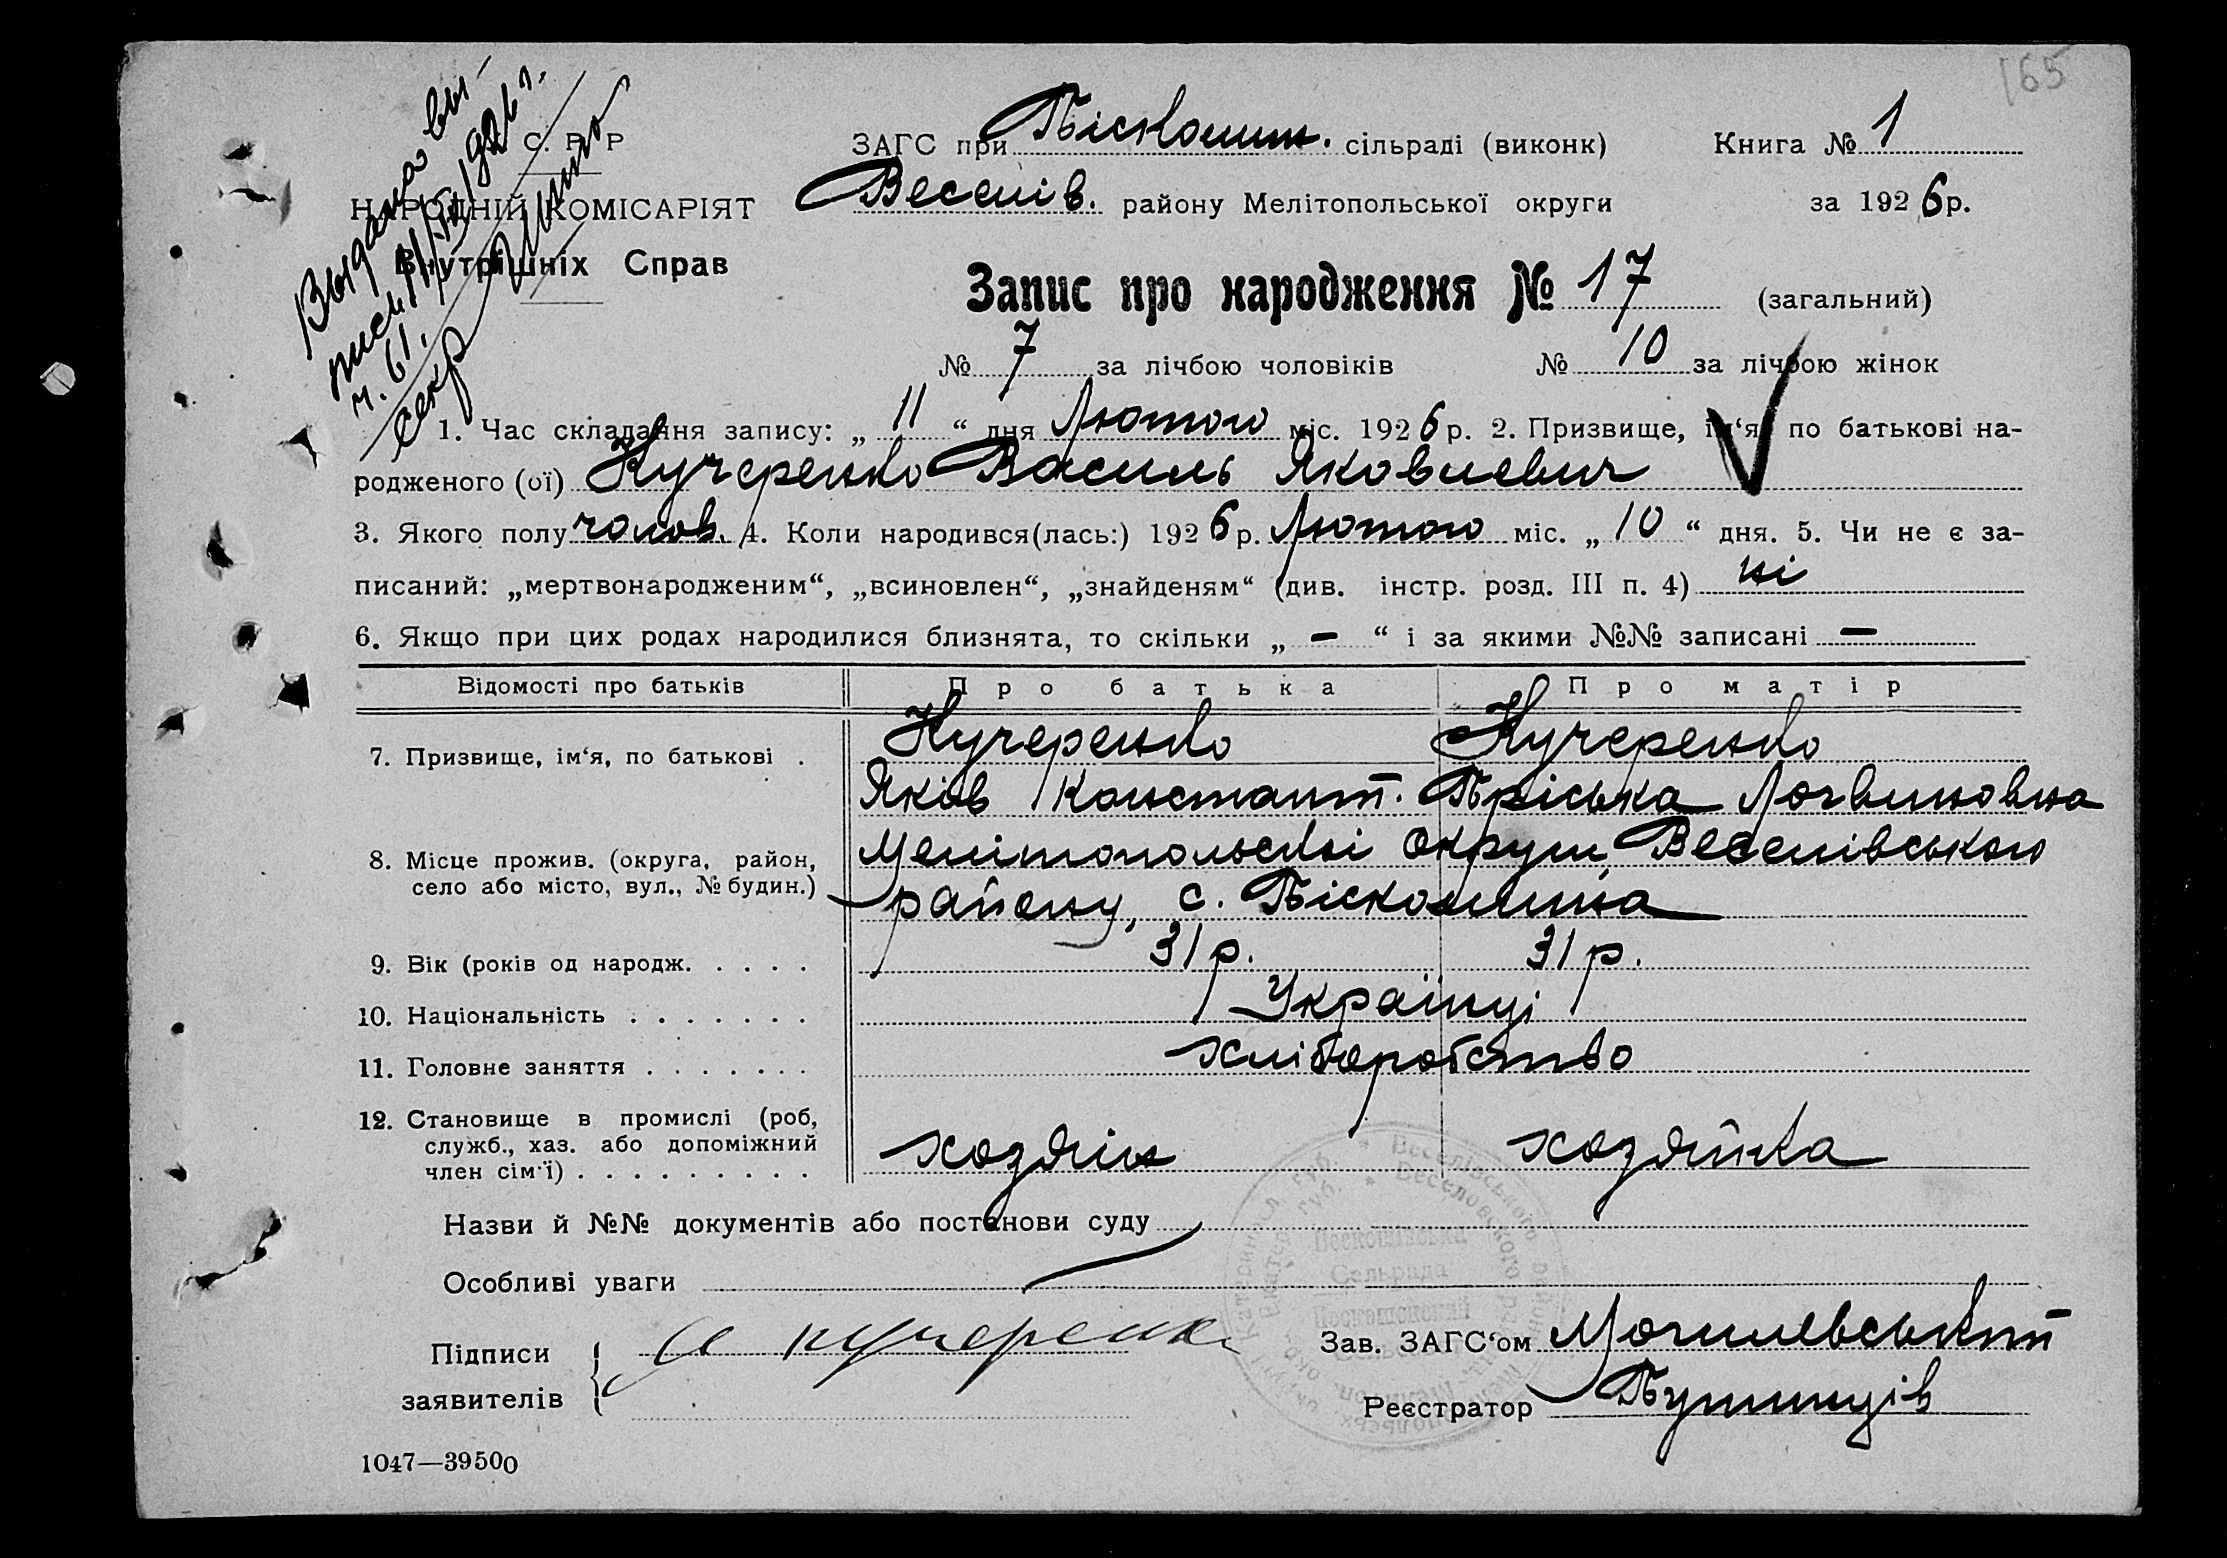 165
У. С. Р. Р
ЗАГС при Піскошин. сільраді (виконк) Книга № 1
НАРОДНІЙ КОМІСАРІЯТ Веселів. району Мелітопольської округи за 1926 р.
Внутрішніх Справ
Выдано вы-
пись
ч. 61.
секр
Запис про народження № 17 (загальний)
№ 7 за лічбою чоловіків № 10 за лічбою жінок
1. Час складання запису: „ 11 “ дня Лютого міс. 1926 р. 2. Призвище, ім‘я, по батькові на-
родженого (ої) Кучеренко Василь Яковлевич
3. Якого полу чолов. 4. Коли народився(лась:) 1926 р. Лютого міс. „ 10 “ дня. 5. Чи не є за-
писаний: „мертвонародженим“, „всиновлен“, „знайденям“ (див. інстр. розд. III п. 4) ні
6. Якщо при цих родах народилися близнята, то скільки „ – “ і за якими №№ записані –
Відомості про батьків Про батька Про матір
7. Призвище, ім‘я, по батькові . Кучеренко Кучеренко
Яків Констант. Пріська Логвиновна
8. Місце прожив. (округа, район, Мелітопольскої округи Веселівського
село або місто, вул., № будин.) району, с. Піскошина
9. Вік (років од народж. . . . . 31 р. 31 р.
10. Національність . . . . . . . Українці
11. Головне заняття . . . . . . . хліборобство
12. Становище в промислі (роб,
служб., хаз. або допоміжний
член сім‘ї) . . . . . . . . . хозяін хозяйка
Назви й №№ документів або постанови суду
Особливі уваги
Підписи Я кучеренк Зав. ЗАГС‘ом Могилевський
заявителів Реєстратор
1047—39500